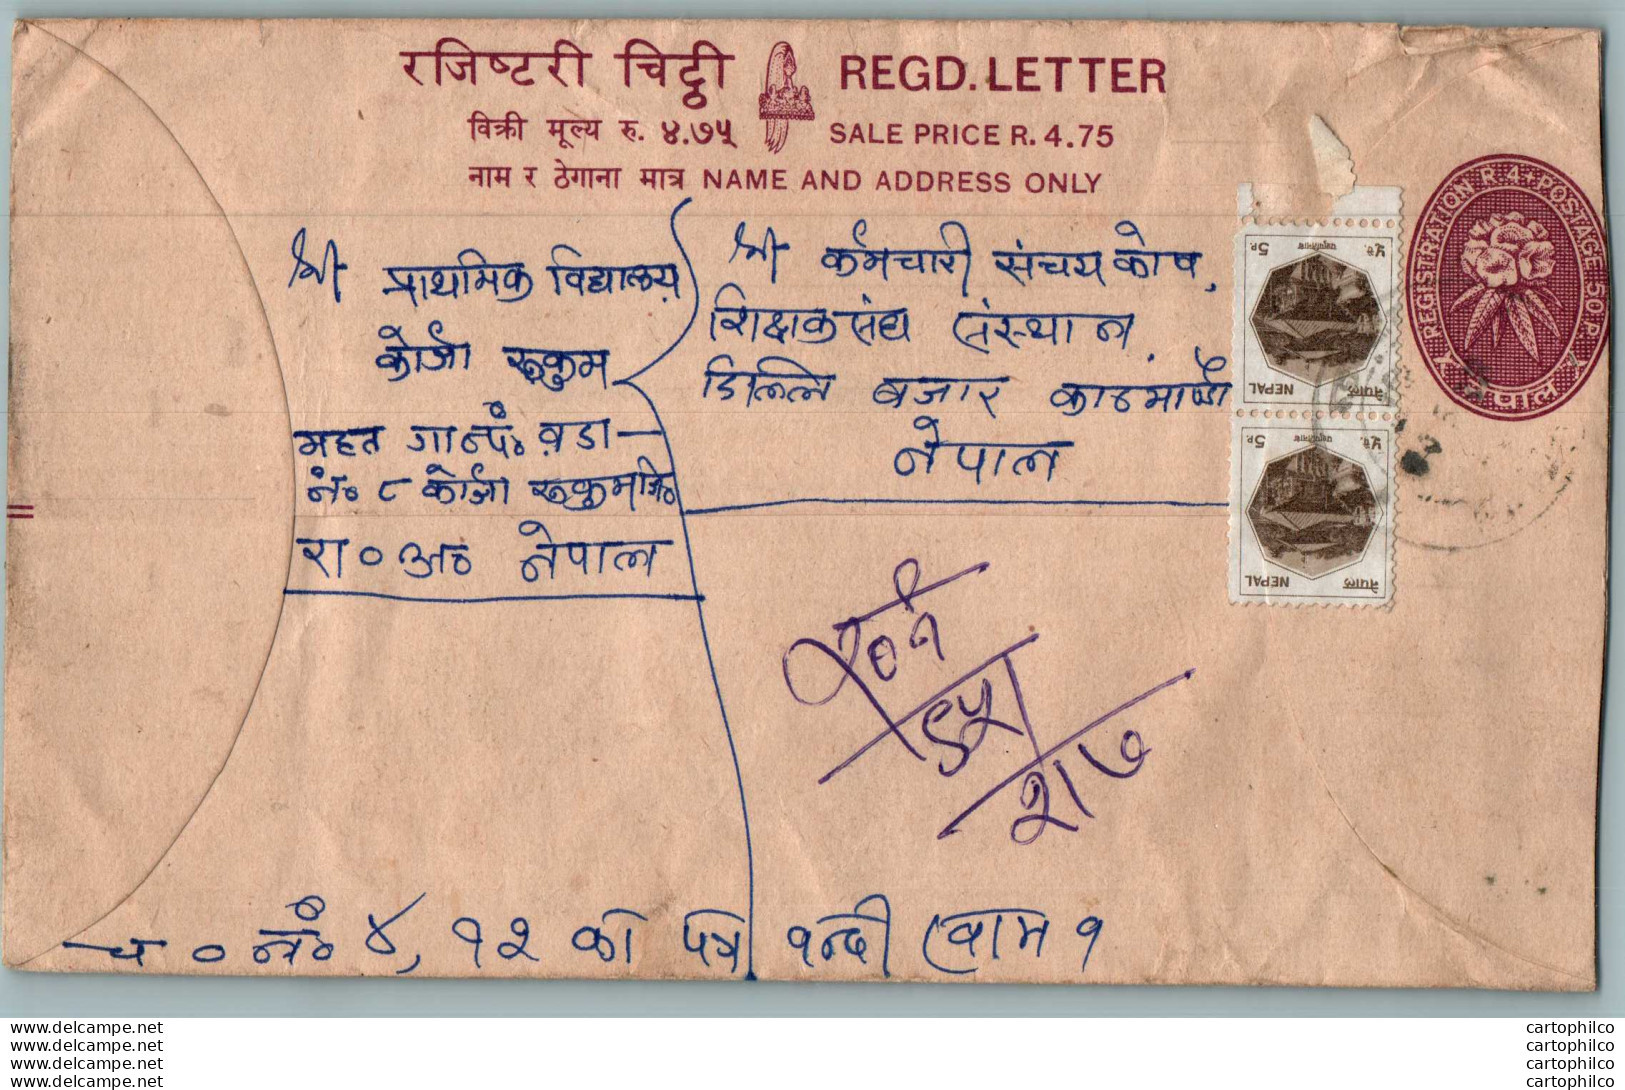 रजिष्टरी चिट्ठी REGD. LETTER
विक्री मूल्य रु. ४.७५ SALE PRICE R. 4.75
नाम र ठेगाना मात्र NAME AND ADDRESS ONLY
REGISTRATION R 4 + POSTAGE 50 P.
नेपाल
श्री प्राथमिक विद्यालय
कोर्जा रूकुम
महत गा०पं० वडा—
नं० ८ कोर्जा रूकुम जि०
रा०अं० नेपाल
श्री कर्मचारी संचय कोष,
शिक्षक संघ संस्थान,
डिल्लि बजार काठमाण्डौ
नेपाल
५ प. पशुपतिनाथ 5 P.
नेपाल NEPAL
५ प. पशुपतिनाथ 5 P.
नेपाल NEPAL
च० नं० ४, १२ को पत्र वन्दी खाम १
www.delcampe.net
www.delcampe.net
www.delcampe.net
www.delcampe.net
cartophilco
cartophilco
cartophilco
cartophilco